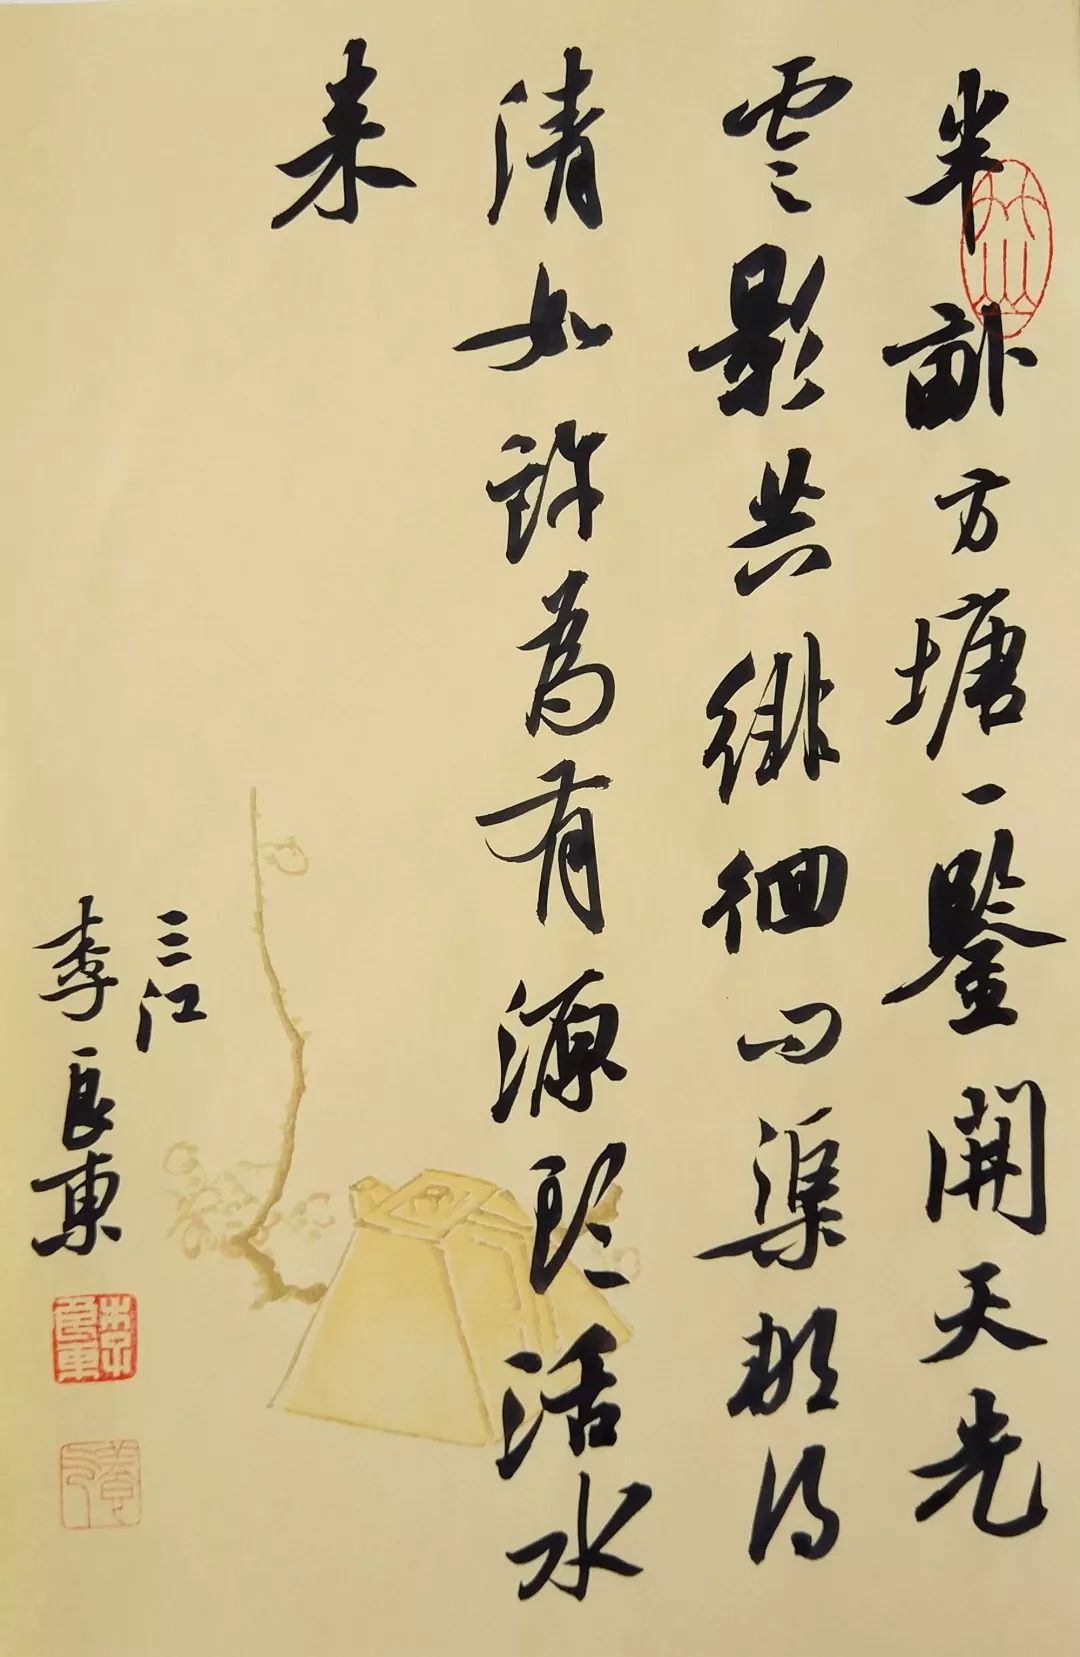 半畝方塘一鑒開天光
雲影共徘徊問渠那得
清如許為有源頭活水
来
三江
李良東